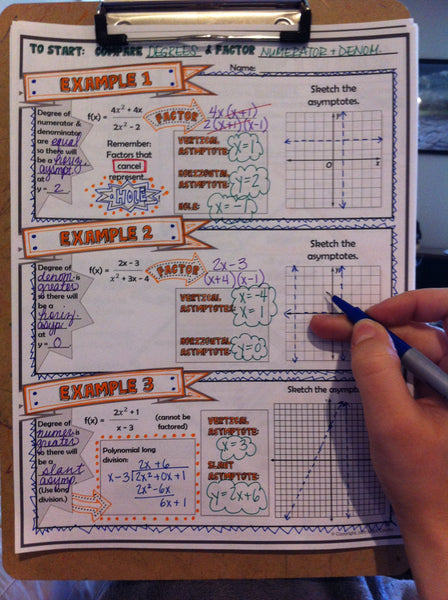 TO START: COMPARE DEGREES & FACTOR NUMERATOR + DENOM.
Name:
EXAMPLE 1
Degree of
numerator &
denominator
are equal
so there will
be a horiz.
asympt.
at
y = 2
f(x) = 4x² + 4x / 2x² – 2
FACTOR
4x(x+1)
2(x+1)(x-1)
Remember:
Factors that
cancel
represent
HOLE
VERTICAL
ASYMPTOTE: x=1
HORIZONTAL
ASYMPTOTE: y=2
HOLE: x=-1
Sketch the
asymptotes.
O
x
EXAMPLE 2
Degree of
denom. is
greater
so there will
be a
horiz.
asymp.
at
y = 0
f(x) = 2x – 3 / x² + 3x – 4
FACTOR
2x-3
(x+4)(x-1)
VERTICAL
ASYMPTOTES: x=-4
x=1
HORIZONTAL
ASYMPTOTE: y=0
Sketch the
asymptotes.
EXAMPLE 3
Degree of
numer. is
greater
so there will
be a
slant
asymp.
(Use long
division.)
f(x) = 2x² + 1 / x – 3
(cannot be
factored)
Polynomial long
division:
2x+6
x-3 2x²+0x+1
2x²-6x
6x+1
VERTICAL
ASYMPTOTE:
x=3
SLANT
ASYMPTOTE:
y=2x+6
Sketch the asymptotes.